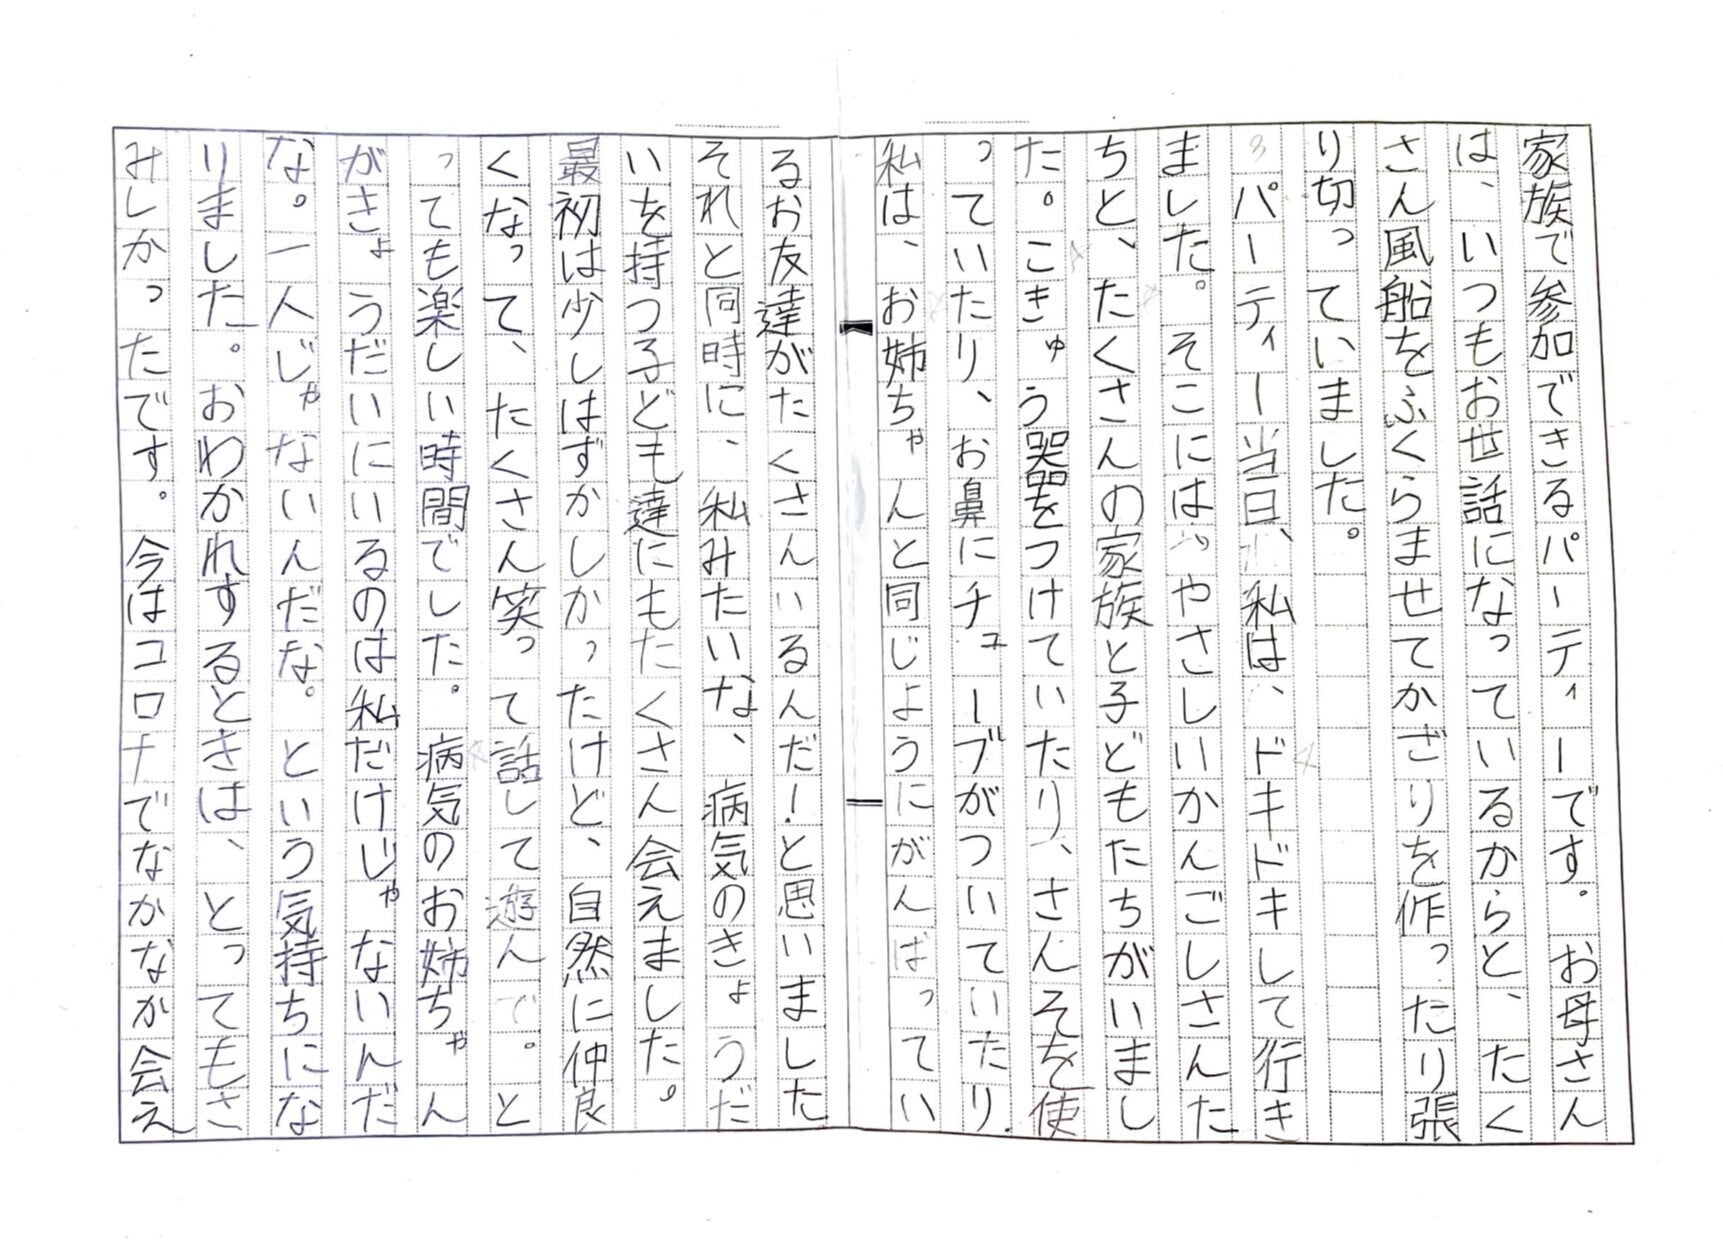 家族で参加できるパーティーです。お母さん
は、いつもお世話になっているからと、たく
さん風船をふくらませてかざりを作ったり張
り切っていました。
パーティー当日、私は、ドキドキして行き
ました。そこにはやさしいかんごしさんた
ちと、たくさんの家族と子どもたちがいまし
た。こきゅう器をつけていたり、さんそを使
っていたり、お鼻にチューブがついていたり
私は、お姉ちゃんと同じようにがんばってい
るお友達がたくさんいるんだ！と思いました
それと同時に、私みたいな、病気のきょうだ
いを持つ子ども達にもたくさん会えました。
最初は少しはずかしかったけど、自然に仲良
くなって、たくさん笑って話して遊んで。と
っても楽しい時間でした。病気のお姉ちゃん
がきょうだいにいるのは私だけじゃないんだ
な。一人じゃないんだな。という気持ちにな
りました。おわかれするときは、とってもさ
みしかったです。今はコロナでなかなか会え